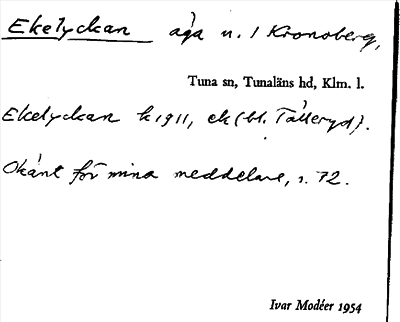 Ekelyckan åga n. 1 Kronoberg,
Tuna sn, Tunaläns hd, Klm. l.
Ekelyckan k 1911, ek (bl. Tålleryd).
Okänt för mina meddelare, s. 72.
Ivar Modéer 1954